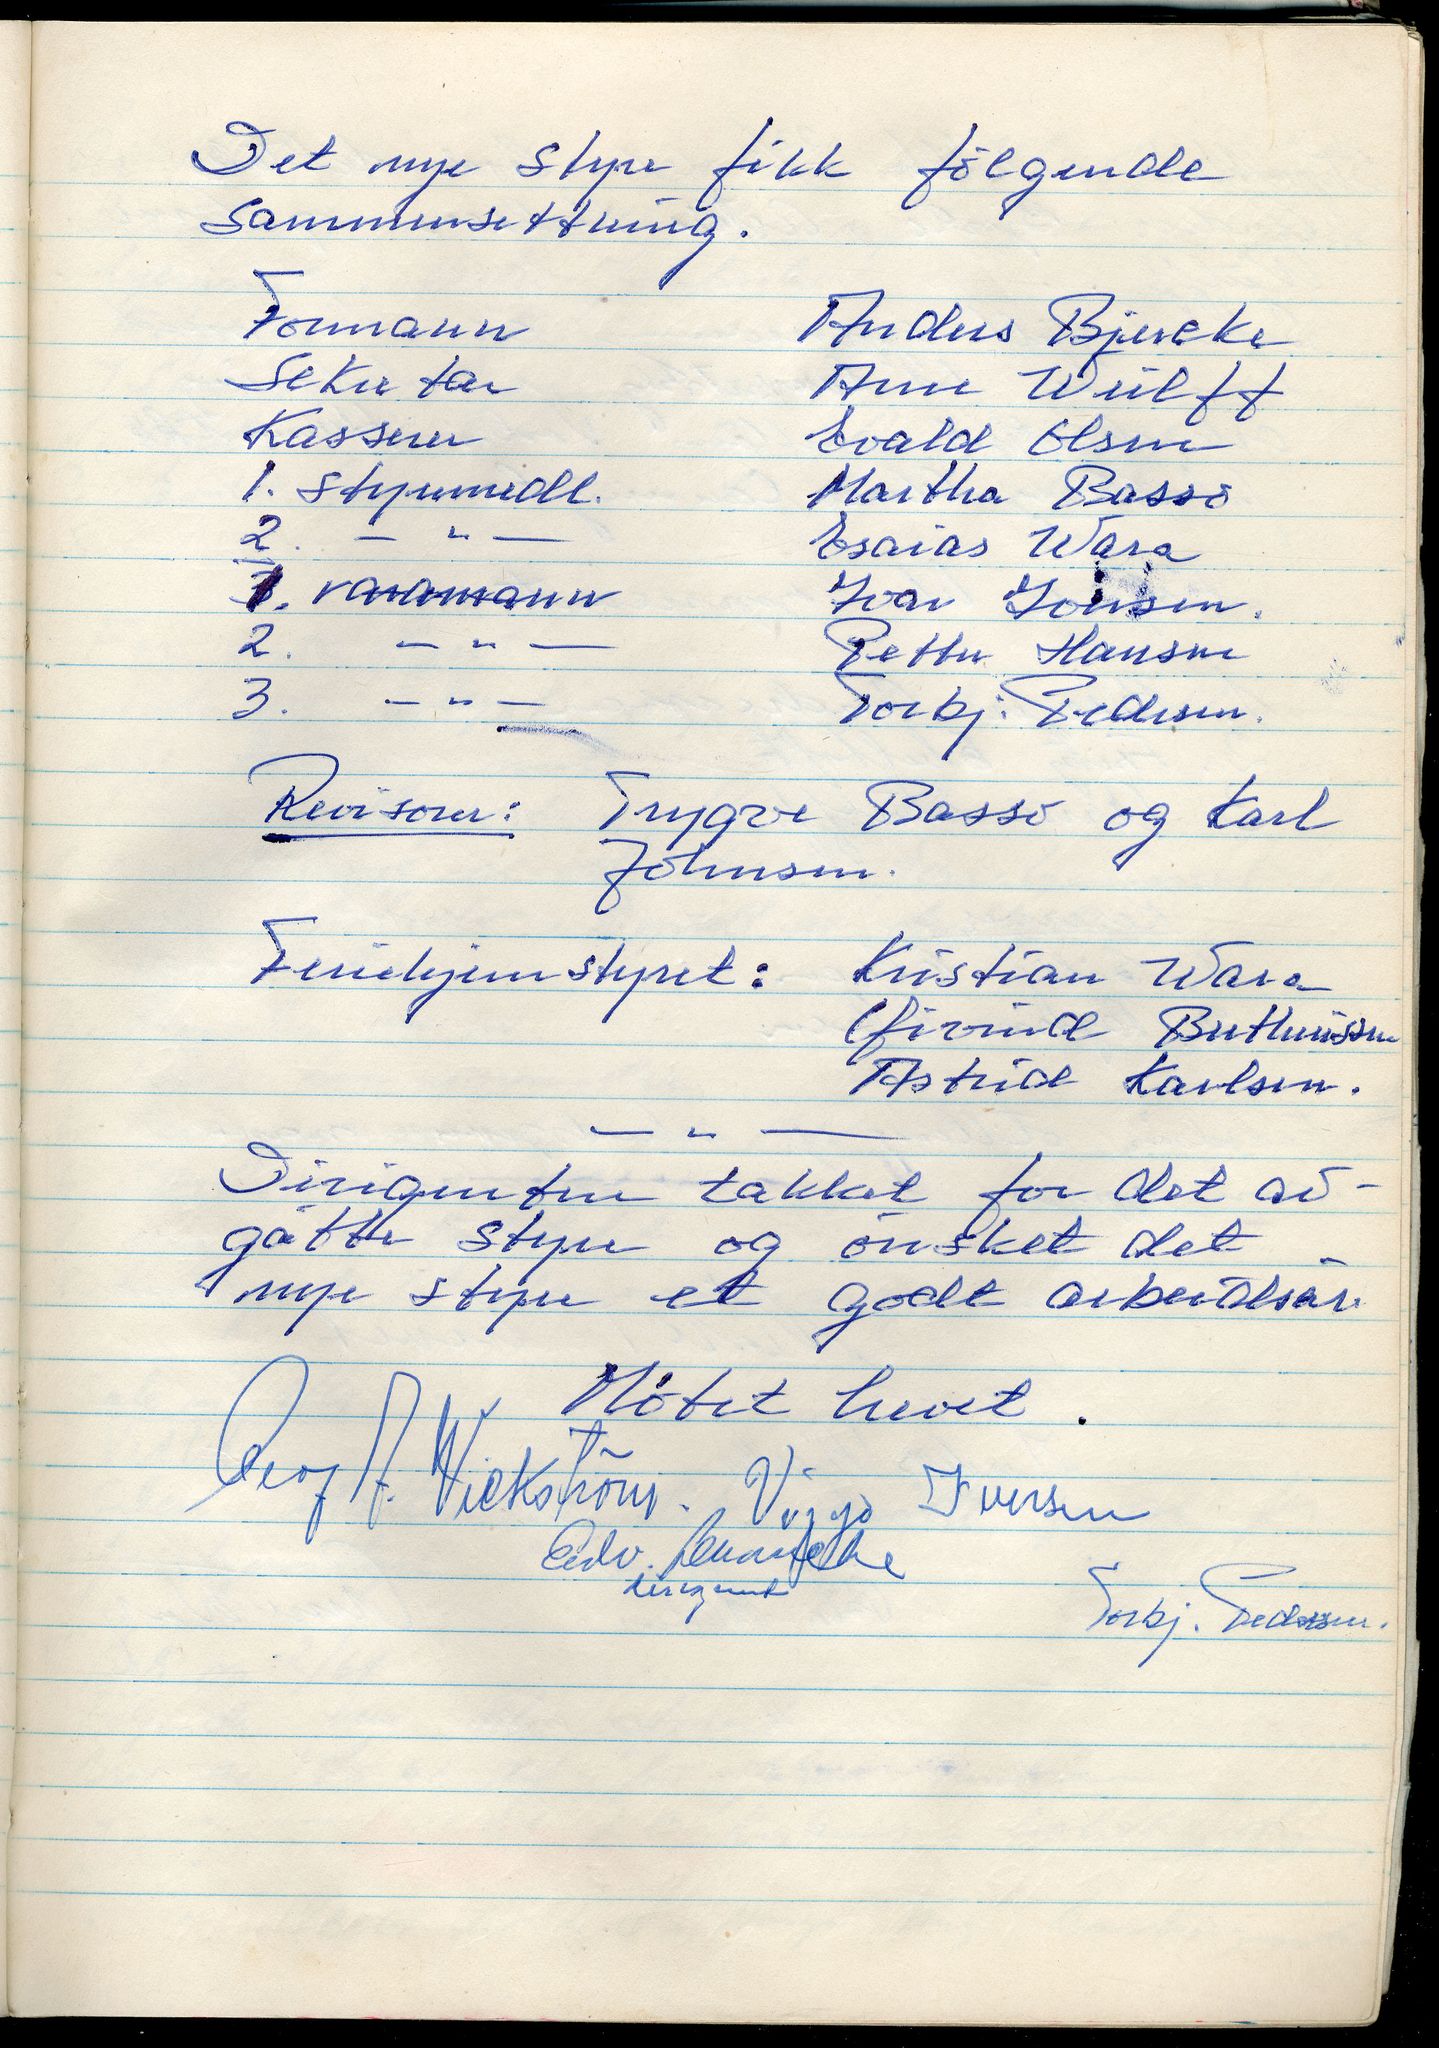 Det nye styre fikk fölgende
sammensettning.
Formann Anders Bjercke
Sekretær Arne Wülff
Kasserer Evald Olsen
1. styremedl. Martha Bassö
2. — " — Esaias Wara
1. varamann Ivar Jonsen.
2. — " — Petter Hansen
3. — " — Torbj. Pedersen.
Revisorer: Trygve Bassö og Karl
Johnsen.
Feriehjemstyret: Kristian Wara
Öivind Berthinissen
Astrid Karlsen.
— " —
Dirigenten takket for det av-
gåtte styre og önsket det
nye styre et godt arbeidsår.
Mötet hevet.
A. Wickström. Viggo Iversen
Edv.
dirigent
Torbj. Pedersen.